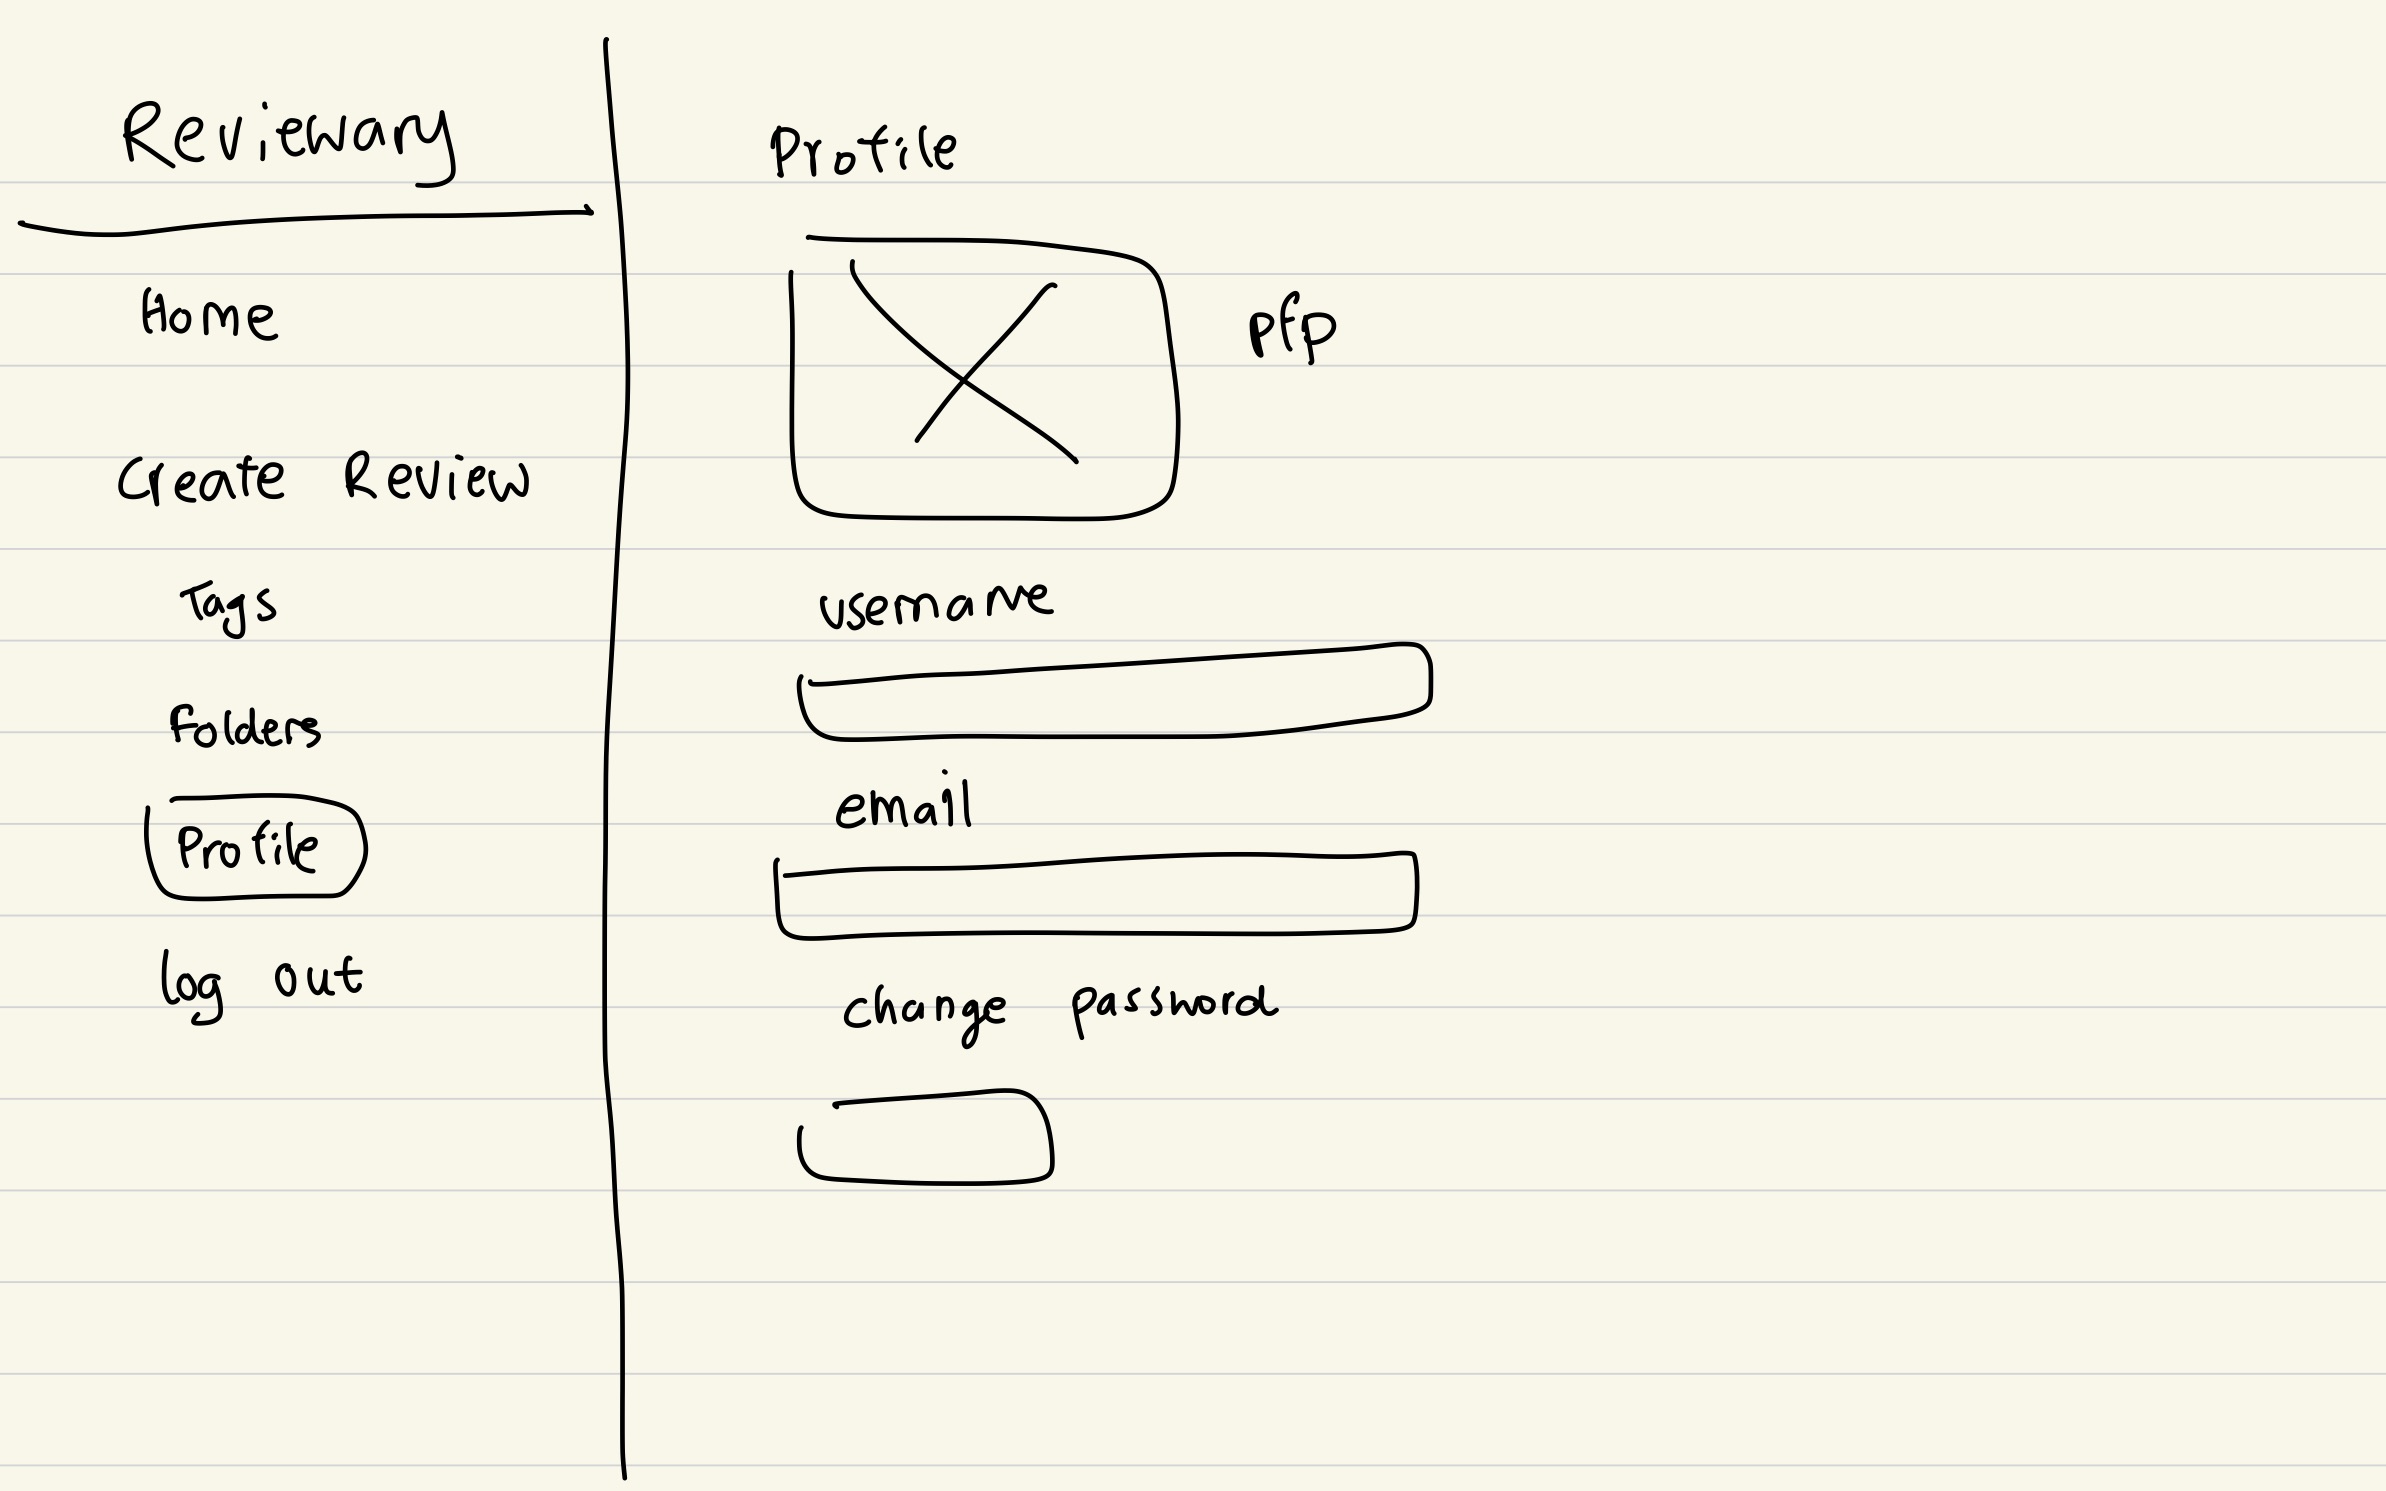 Reviewary
Home
Create Review
Tags
Folders
Profile
log out
Profile
pfp
username
email
change password